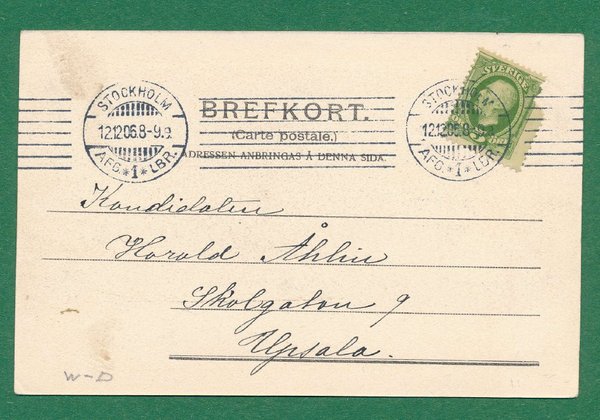 SVERIGE
STOCKHOLM
12.12.06.8-9
AFG.*1*LBR.
STOCKHOLM
12.12.06.8-9
AFG.*1*LBR.
BREFKORT.
(Carte postale.)
ADRESSEN ANBRINGAS Å DENNA SIDA.
Kandidaten
Harald Åhlin
Skolgatan 9
Upsala.
W-D